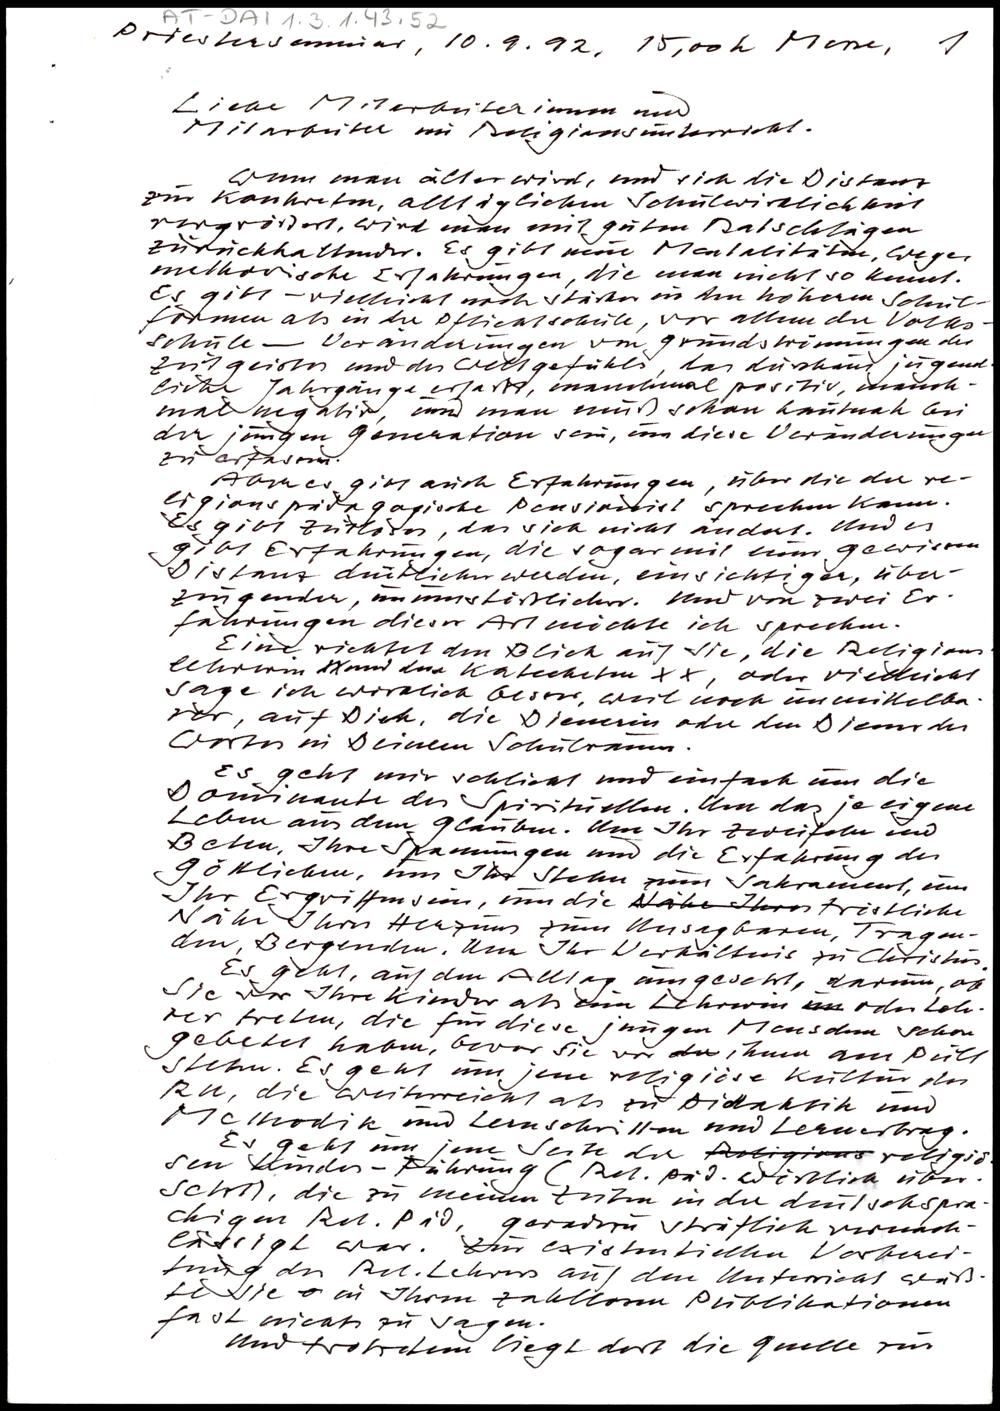 AT-DAI 1.3.1.43.52
Priesterseminar, 10.9.92, 15,00h Messe, 1
Liebe Mitarbeiterinnen und
Mitarbeiter im Religionsunterricht.
Wenn man älter wird, und sich die Distanz
zur konkreten, alltäglichen Schulwirklichkeit
vergrößert, wird man mit guten Ratschlägen
zurückhaltender. Es gibt neue Mentalitäten, Wege,
methodische Erfahrungen, die man nicht so kennt.
Es gibt – vielleicht noch stärker in den höheren Schul-
formen als in der Pflichtschule, vor allem der Volks-
schule – Veränderungen von Grundstimmungen des
Zeitgeistes und des Weltgefühls, das durchaus jugend-
liche Jahrgänge erfaßt, manchmal positiv, manch-
mal negativ, und man muß schon hautnah bei
der jungen Generation sein, um diese Veränderungen
zu erfassen.
Aber es gibt auch Erfahrungen, über die der re-
ligionspädagogische Pensionist sprechen kann.
Es gibt Zeitloses, das sich nicht ändert. Und es
gibt Erfahrungen, die sogar mit einer gewissen
Distanz deutlicher werden, einsichtiger, über-
zeugender, unumstößlicher. Und von zwei Er-
fahrungen dieser Art möchte ich sprechen.
Eine richtet den Blick auf Sie, die Religions-
lehrerin und den Katecheten XX, oder vielleicht
sage ich wirklich besser, weil noch unmittelba-
rer, auf Dich, die Dienerin oder den Diener des
Wortes in Deinem Schulraum.
Es geht mir schlicht und einfach um die
Dominante des Spirituellen. Um das je eigene
Leben aus dem Glauben. Um Ihr Zweifeln und
Beten, Ihre Spannungen und die Erfahrung des
Göttlichen, um Ihr Stehen zum Sakrament, um
Ihr Ergriffensein, um die Nähe Ihres tröstliche
Nähe Ihres Herzens zum Unsagbaren, Tragen-
den, Bergenden. Um Ihr Verhältnis zu Christus.
Es geht, auf den Alltag umgesetzt, darum, ob
Sie vor Ihre Kinder als eine Lehrerin oder Leh-
rer treten, die für diese jungen Menschen schon
gebetet haben, bevor Sie vor ihnen am Pult
stehen. Es geht um jene religiöse Kultur des
RU, die weiterreicht als zu Didaktik und
Methodik und Lernschritten und Lernertrag.
Es geht um jene Seite der Religions religiö-
sen Kinder-Führung (Rel. päd. wörtlich über-
setzt), die zu meinen Zeiten in der deutschspra-
chigen Rel. Päd. geradezu sträflich vernach-
lässigt war. Zur existentiellen Vorberei-
tung des Rel. Lehrers auf den Unterricht wuß-
te sie in Ihren zahllosen Publikationen
fast nichts zu sagen.
Und trotzdem liegt dort die Quelle zur